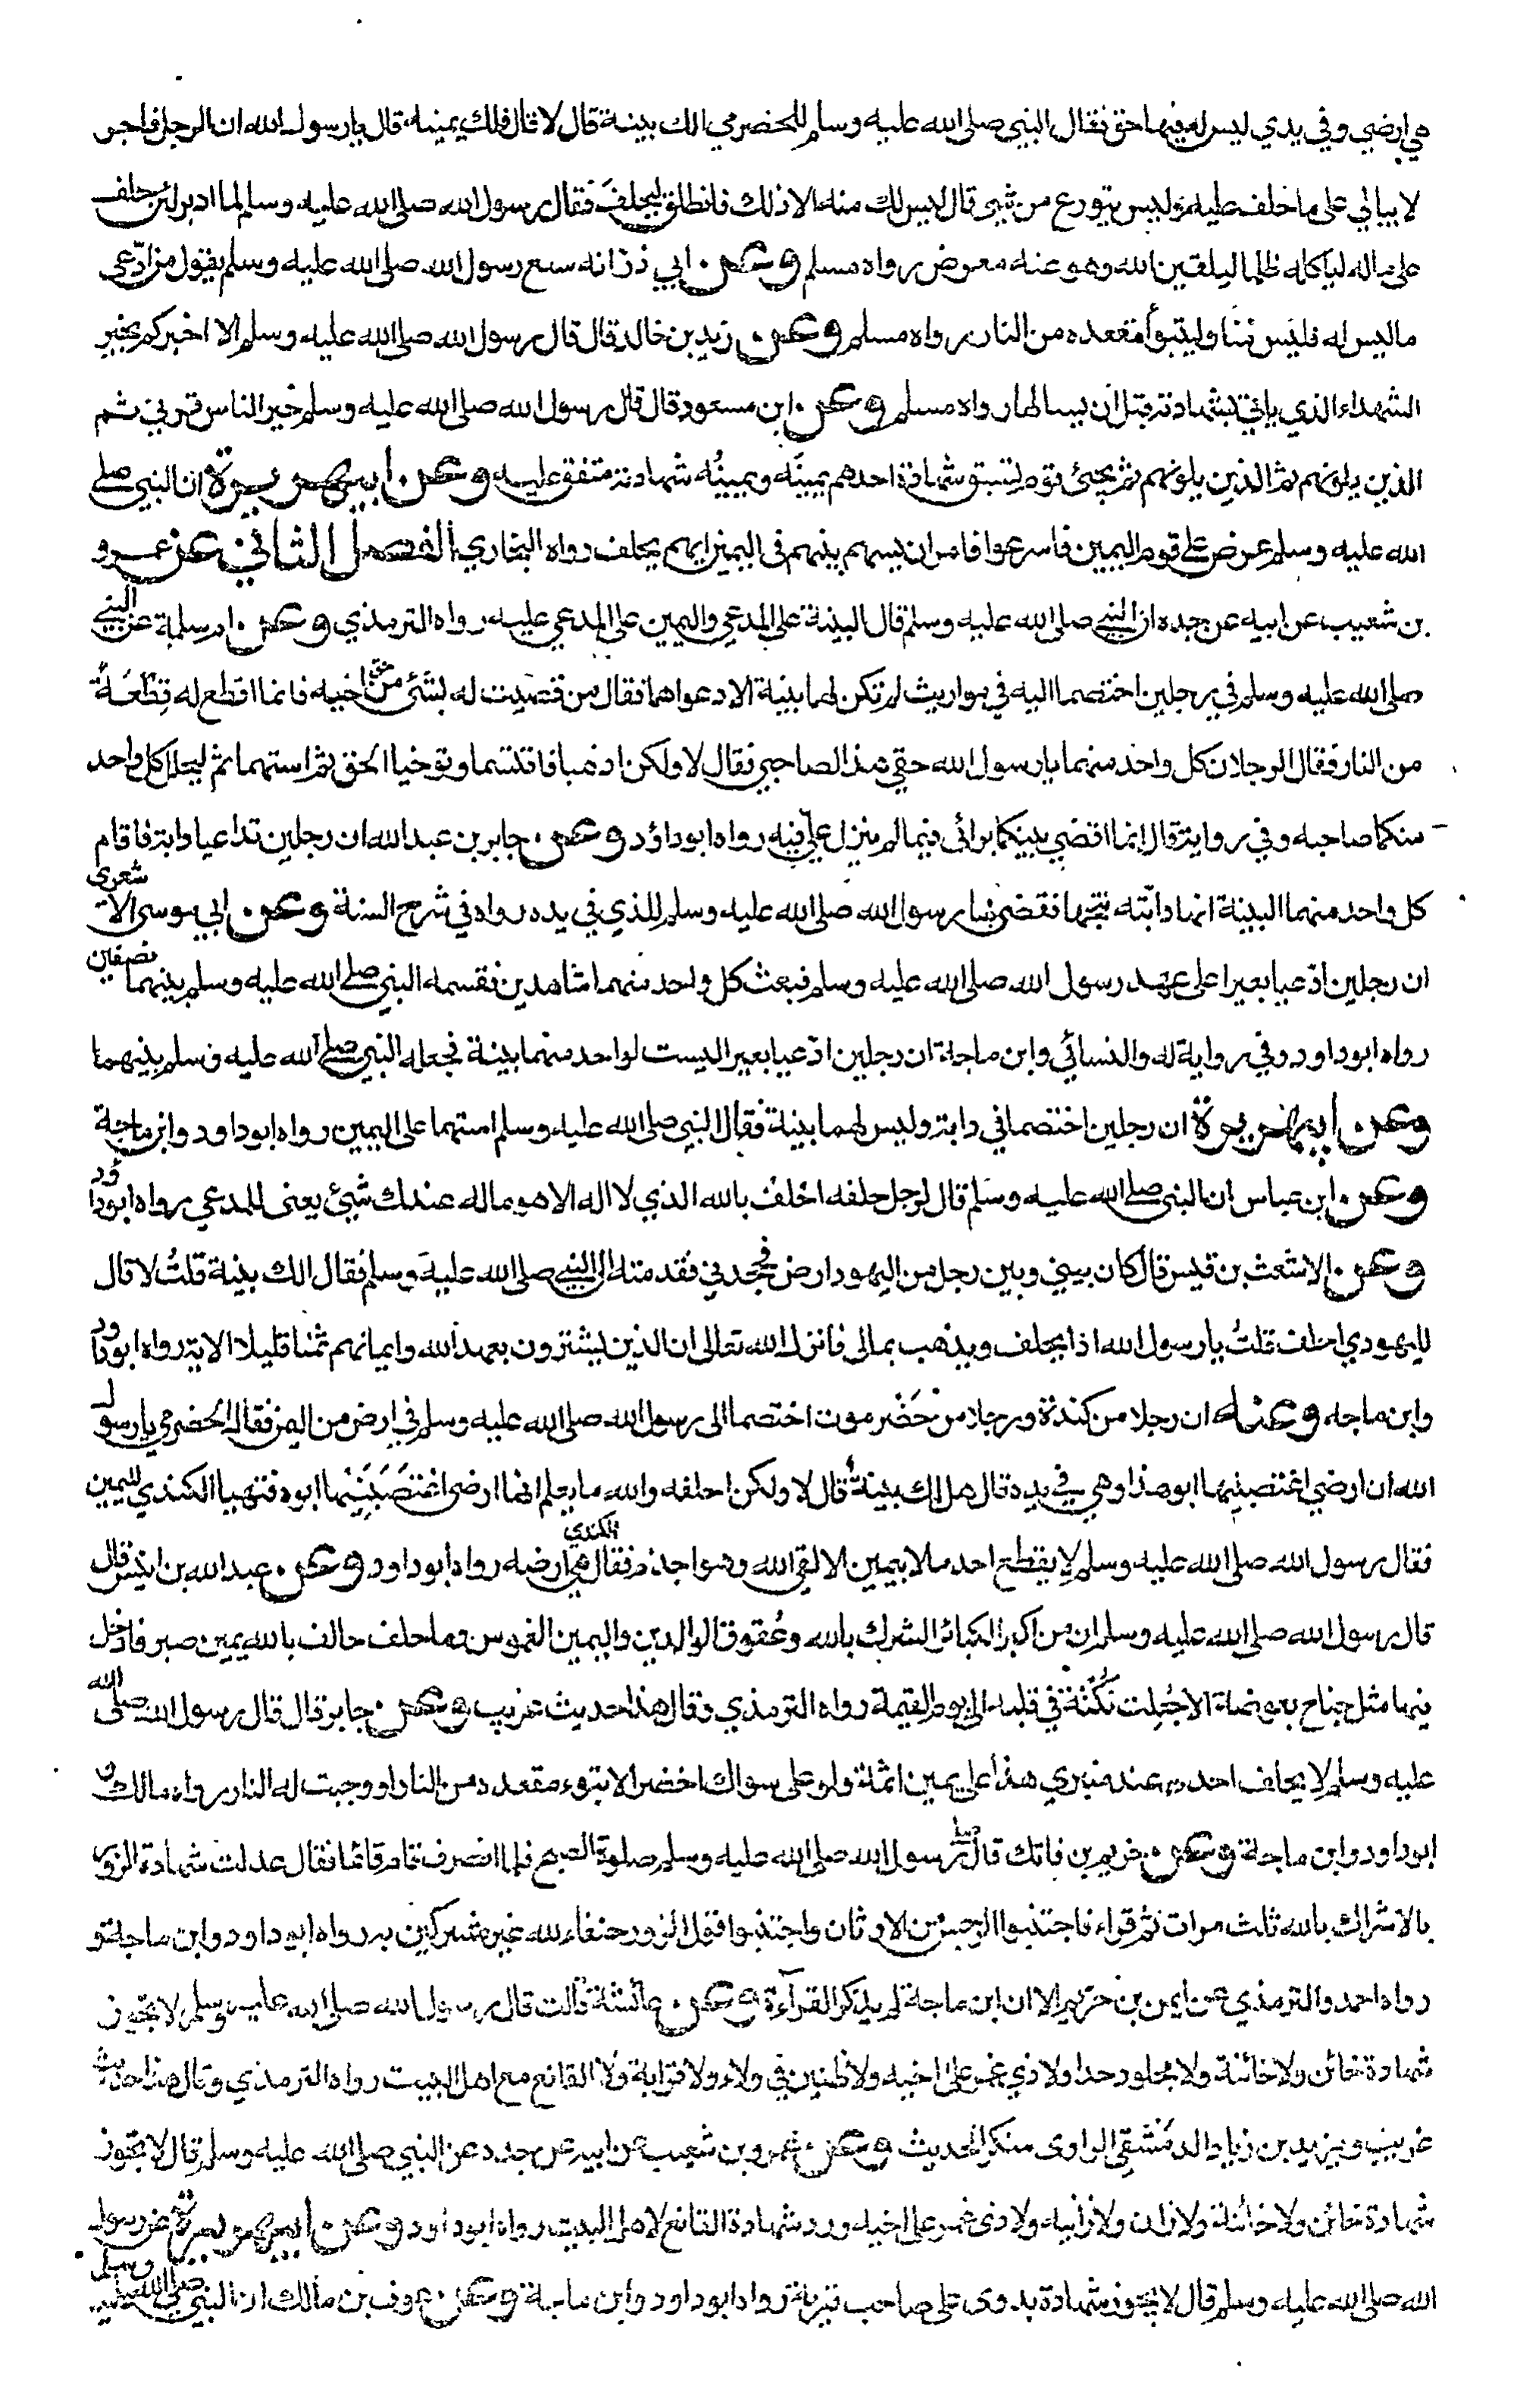 هي ارضي وفي يدي ليس له فيها حق فقال النبي صلى الله عليه وسلم للحضرمي الك بينة قال لا قال فلك يمينه قال يا رسول الله ان الرجل فاجر
لا يبالي على ما حلف عليه وليس يتورع من شئ قال ليس لك منه الا ذلك فانطلق ليحلف فقال رسول الله صلى الله عليه وسلم لما ادبر لئن حلف
على ماله لياكله ظلما ليلقين الله وهو عنه معرض رواه مسلم وعن ابي ذر انه سمع رسول الله صلى الله عليه وسلم يقول من ادّعى
ما ليس له فليس منا وليتبوأ مقعده من النار رواه مسلم وعن زيد بن خالد قال قال رسول الله صلى الله عليه وسلم الا اخبركم بخير
الشهداء الذي ياتي بشهادته قبل ان يسالها رواه مسلم وعن ابن مسعود قال قال رسول الله صلى الله عليه وسلم خير الناس قرني ثم
الذين يلونهم ثم الذين يلونهم ثم يجئ قوم تسبق شهادة احدهم يمينَه ويمينُه شهادته متفق عليه وعن ابي هريرة ان النبي صلى
الله عليه وسلم عرض على قوم اليمين فاسرعوا فامر ان يسهم بينهم في اليمين ايهم يحلف رواه البخاري الفصل الثاني عن عمرو
بن شعيب عن ابيه عن جده ان النبي صلى الله عليه وسلم قال البينة على المدعي واليمين على المدعي عليه رواه الترمذي وعن ام سلمة عن النبي
صلى الله عليه وسلم في رجلين اختصما اليه في مواريث لم تكن لهما بينة الا دعواهما فقال من قضيت له بشئ من حق اخيه فانما اقطع له قِطْعَةً
من النار فقال الرجلان كل واحد منهما يا رسول الله حقي هذا لصاحبي فقال لا ولكن اذهبا فاقتسما وتوخيا الحق ثم استهما ثم ليحلل كل واحد
منكما صاحبه وفي رواية قال انما اقضي بينكما برائي فيما لم ينزل عليّ فيه رواه ابو داؤد وعن جابر بن عبد الله ان رجلين تداعيا دابة فاقام
كل واحد منهما البينة انها دابته نتجها فقضى بها رسول الله صلى الله عليه وسلم للذي في يده رواه في شرح السنة وعن ابي موسى الاشعري
ان رجلين ادّعيا بعيرا على عهد رسول الله صلى الله عليه وسلم فبعث كل واحد منهما شاهدين فقسمه النبي صلى الله عليه وسلم بينهما نصفين
رواه ابو داود وفي رواية له والنسائي وابن ماجة ان رجلين ادّعيا بعيرا ليست لواحد منهما بينة فجعله النبي صلى الله عليه وسلم بينهما
وعن ابي هريرة ان رجلين اختصما في دابة وليس لهما بينة فقال النبي صلى الله عليه وسلم استهما على اليمين رواه ابو داود وابن ماجة
وعن ابن عباس ان النبي صلى الله عليه وسلم قال لرجل حلفه احلف بالله الذي لا اله الا هو ماله عندك شئ يعني للمدعي رواه ابو داؤد
وعن الاشعث بن قيس قال كان بيني وبين رجل من اليهود ارض فجحدني فقدمته الى النبي صلى الله عليه وسلم فقال الك بينة قلتُ لا قال
لليهودي احلف قلتُ يا رسول الله اذا يحلف ويذهب بمالي فانزل الله تعالى ان الذين يشترون بعهد الله وايمانهم ثمنا قليلا الاية رواه ابو داود
وابن ماجه وعنه ان رجلا من كندة ورجلا من حَضْرموت اختصما الى رسول الله صلى الله عليه وسلم في ارض من اليمن فقال الحضرمي يا رسول
الله ان ارضي اغتصبنيها ابو هذا وهي في يده قال هل لك بينة قال لا ولكن احلفه والله ما يعلم انها ارضي اغتصَبَنِيْها ابوه فتهيا الكندي لليمين
فقال رسول الله صلى الله عليه وسلم لا يقطع احد مالا بيمين الا لقي الله وهو اجذم فقال الكندي هي ارضه رواه ابو داود وعن عبد الله بن انيس قال
قال رسول الله صلى الله عليه وسلم ان من اكبر الكبائر الشرك بالله وعُقوق الوالدين واليمين الغموس وما حلف حالف بالله يمين صبر فادخل
فيها مثل جناح بعوضة الا جُعِلت نُكْتَة في قلبه الى يوم القيمة رواه الترمذي وقال هذا حديث غريب وعن جابر قال قال رسول الله صلى الله
عليه وسلم لا يحلف احد عند منبري هذا على يمين اثمة ولو على سواك اخضر الا تبوء مقعده من النار او وجبت له النار رواه مالك و
ابو داود وابن ماجة وعن خريم بن فاتك قال صلى رسول الله صلى الله عليه وسلم صلوة الصبح فلما انصرف قام قائما فقال عدلت شهادة الزور
بالاشراك بالله ثلث مرات ثم قراء فاجتنبوا الرجس من الاوثان واجتنبوا قول الزور حنفاء لله غير مشركين به رواه ابو داود وابن ماجة و
رواه احمد والترمذي عن ايمن بن خريم الا ان ابن ماجة لم يذكر القرآءة وعن عائشة قالت قال رسول الله صلى الله عليه وسلم لا تجوز
شهادة خائن ولا خائنة ولا مجلود حدا ولا ذي غمر على اخيه ولا ظنين في ولاء ولا قرابة ولا القانع مع اهل البيت رواه الترمذي وقال هذا حديث
غريب ويزيد بن زياد الدمشقي الراوي منكر الحديث وعن عمرو بن شعيب عن ابيه عن جده عن النبي صلى الله عليه وسلم قال لا تجوز
شهادة خائن ولا خائنة ولا زان ولا زانية ولا ذي غمر على اخيه ورد شهادة القانع لاهل البيت رواه ابو داود وعن ابي هريرة عن رسول
الله صلى الله عليه وسلم قال لا تجوز شهادة بدوي على صاحب قرية رواه ابو داود وابن ماجة وعن عوف بن مالك ان النبي صلى الله عليه وسلم